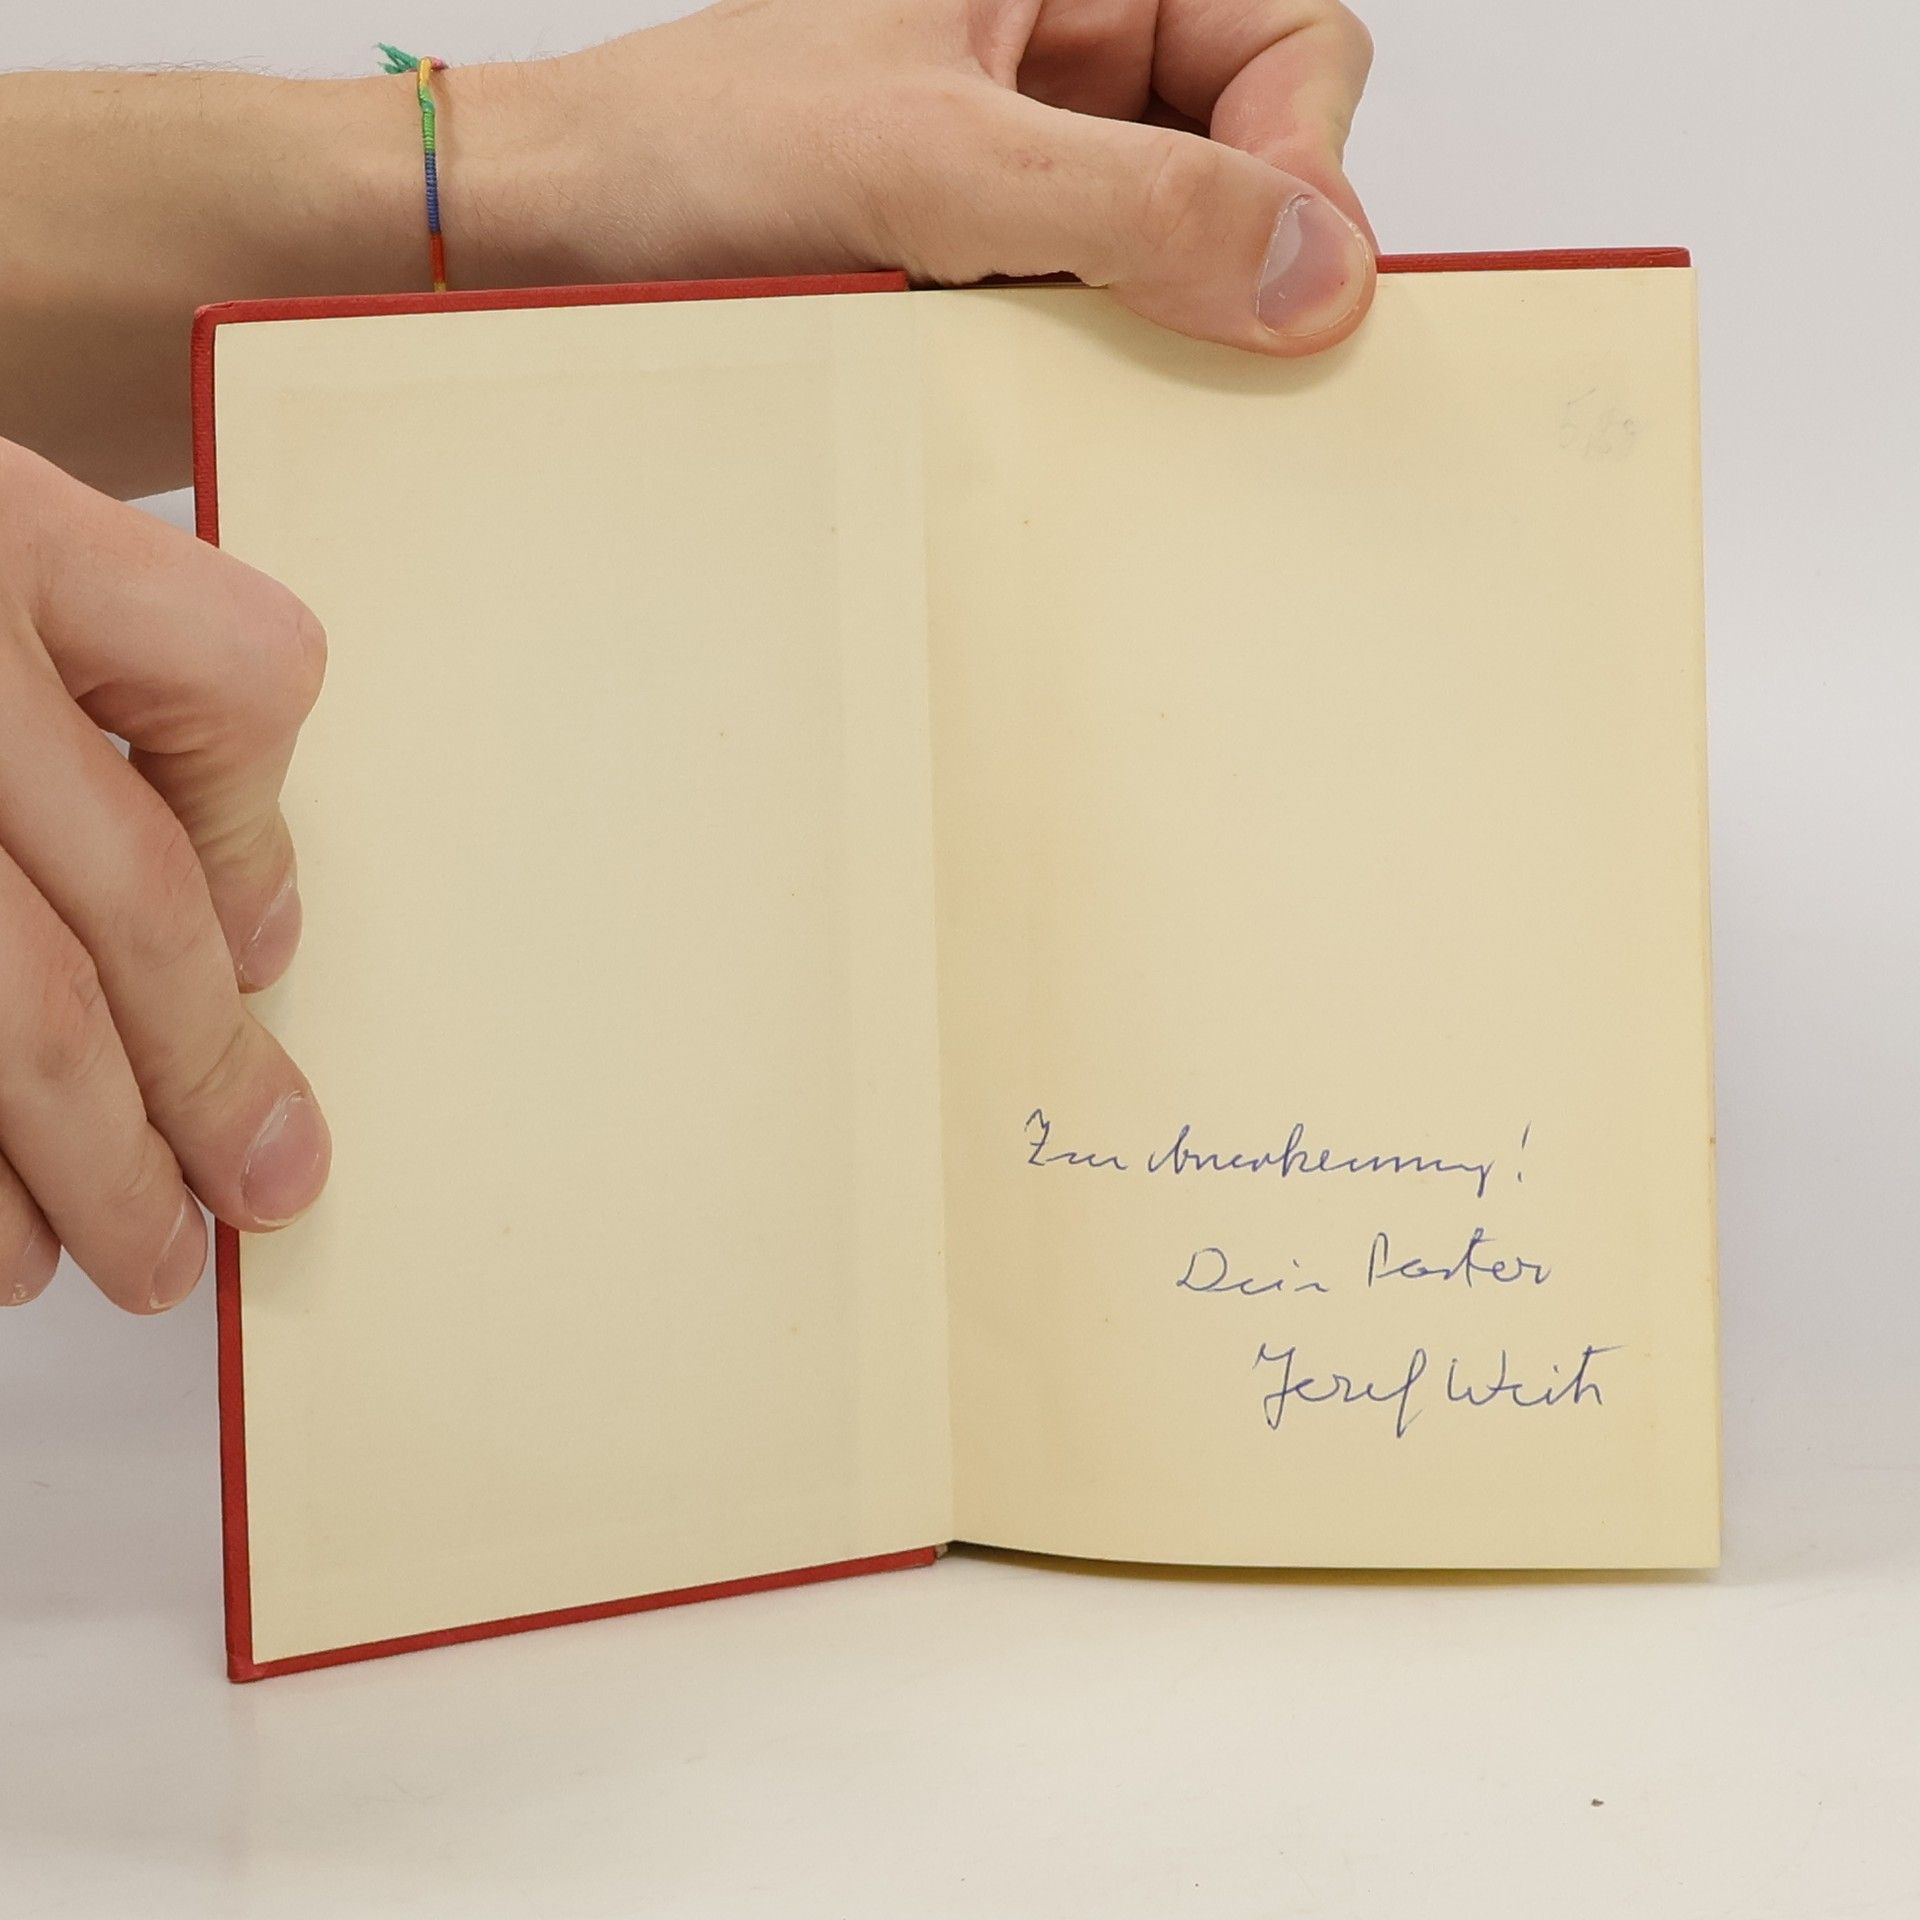 Zur Anerkennung!
Dein Pastor
Josef